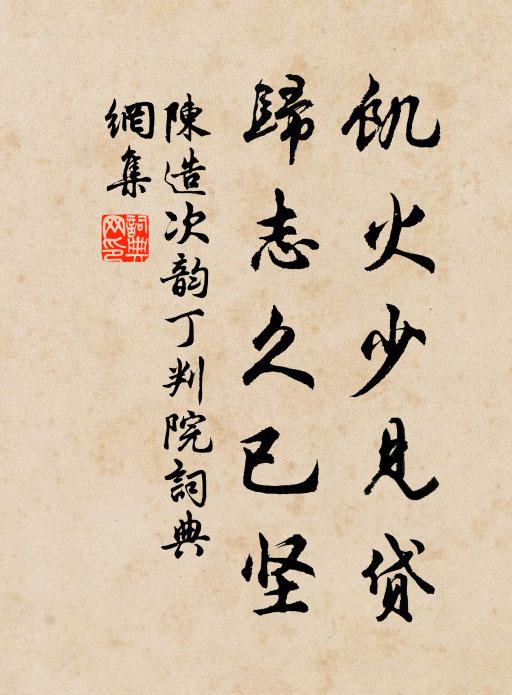 飢火少見貸
歸志久已坚
陳造次韵丁判院詞典
網集
詞典網印